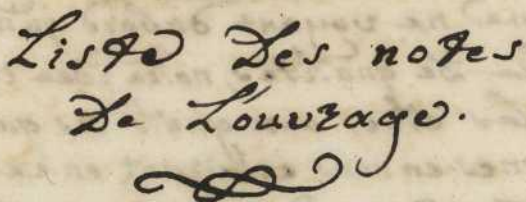 Liste Des notes
De L'ouvrage.